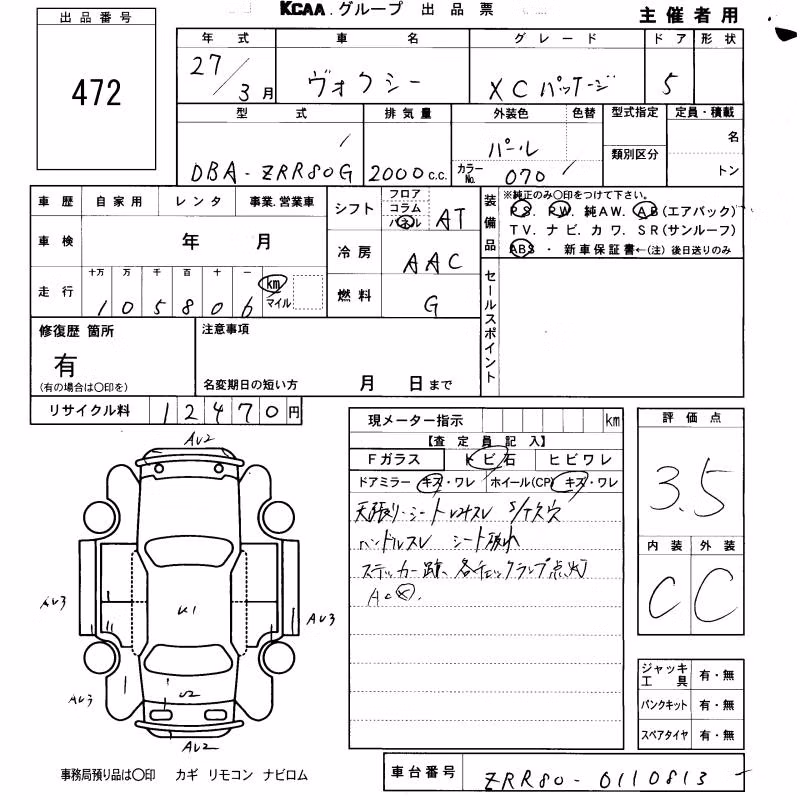 KCAA.グループ 出品票 主催者用
出品番号
472
年式 車名 グレード ドア 形状
27/3月 ヴォクシー XCパッケージ 5
型式 排気量 外装色 色替 型式指定 定員・積載
DBA-ZRR80G 2000c.c. パール 類別区分 名
カラーNo. 070 トン
車歴 自家用 レンタ 事業.営業車
シフト フロア コラム パネル AT
装備品 ※純正のみ〇印をつけて下さい。
PS. PW. 純AW. AB(エアバック)
TV. ナビ. カワ. SR(サンルーフ)
ABS ・ 新車保証書←(注) 後日送りのみ
車検 年 月
冷房 AAC
走行 十万 万 千 百 十 一
105806 km マイル
燃料 G
セールスポイント
修復歴 箇所
有
(有の場合は〇印を)
注意事項
名変期日の短い方 月 日まで
リサイクル料 12470円
現メーター指示 km
【査定員記入】
Fガラス トビ石 ヒビワレ
ドアミラー キズ・ワレ ホイール(CP) キズ・ワレ
天張り・シート
ハンドルスレ シート破れ
ステッカー跡、各チェックランプ点灯
AC
評価点
3.5
内装 外装
C C
AV2
AV3
U1
AV3
AV3
U2
AV2
ジャッキ工具 有・無
パンクキット 有・無
スペアタイヤ 有・無
事務局預り品は〇印 カギ リモコン ナビロム
車台番号 ZRR80-0110813